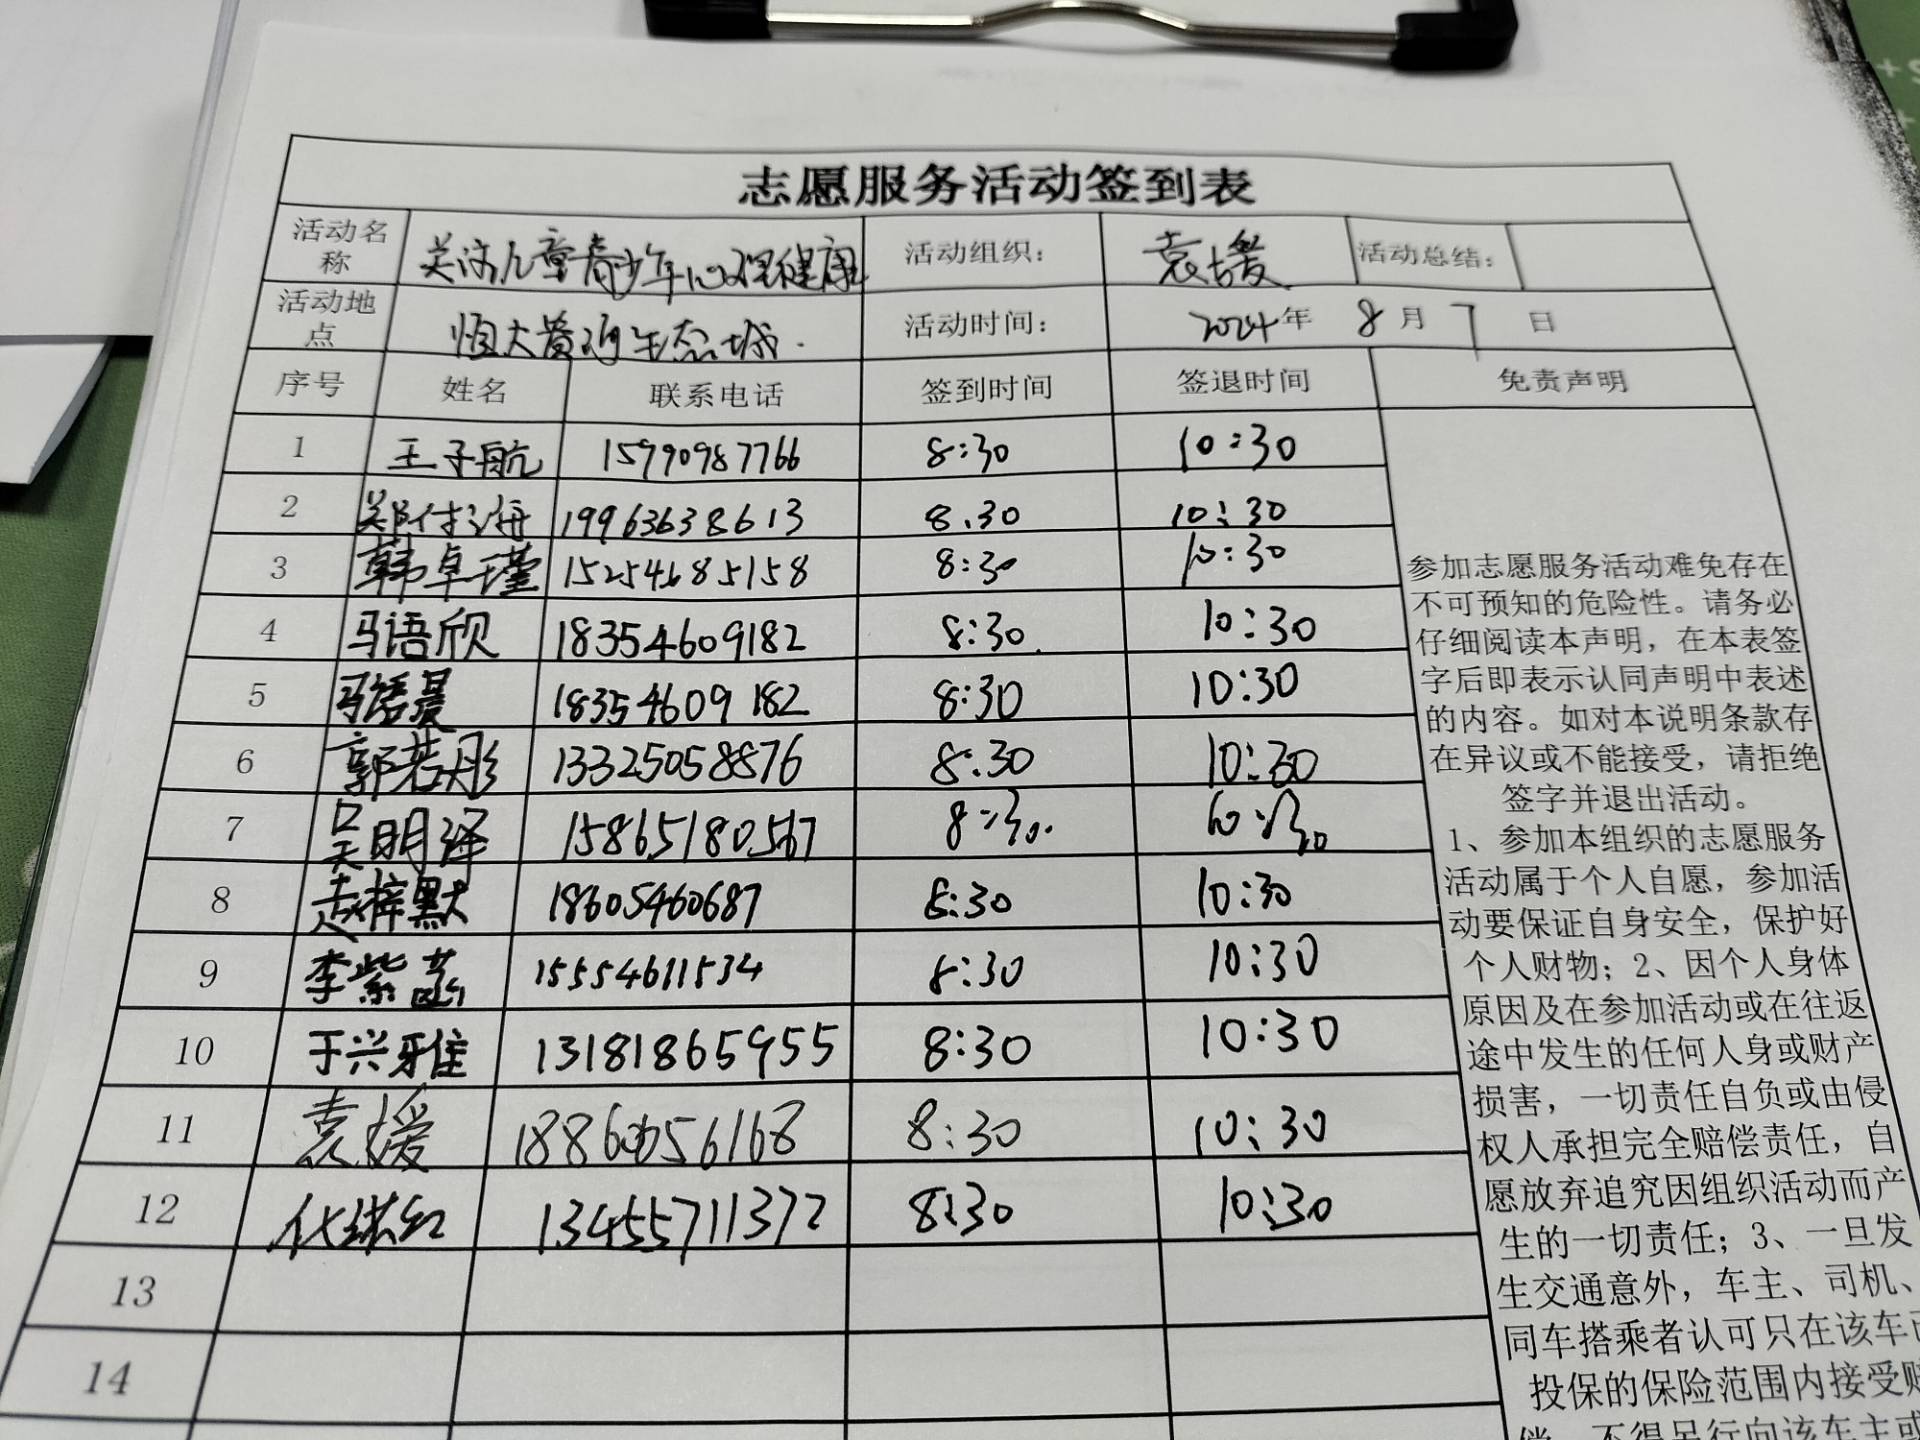 志愿服务活动签到表
活动名称 关注儿童青少年心理健康 活动组织： 袁媛 活动总结：
活动地点 恒大黄河生态城. 活动时间： 2024年 8月 7 日
序号 姓名 联系电话 签到时间 签退时间 免责声明
1 王子航 15990987766 8:30 10:30
2 19963638613 8.30 10:30
3 韩卓瑾 15254685158 8:30 10:30
4 马语欣 18354609182 8:30. 10:30
5 马语晨 18354609182 8:30 10:30
6 郭若彤 13325058876 8:30 10:30
7 吴明泽 15865180567 8:30. 10:30
8 赵梓默 18605460687 8:30 10:30
9 李紫菡 15554611534 8:30 10:30
10 于兴雅 13181865955 8:30 10:30
11 袁媛 18860056168 8:30 10:30
12 13455711372 8:30 10:30
13
14
参加志愿服务活动难免存在
不可预知的危险性。请务必
仔细阅读本声明，在本表签
字后即表示认同声明中表述
的内容。如对本说明条款存
在异议或不能接受，请拒绝
签字并退出活动。
1、参加本组织的志愿服务
活动属于个人自愿，参加活
动要保证自身安全，保护好
个人财物；2、因个人身体
原因及在参加活动或在往返
途中发生的任何人身或财产
损害，一切责任自负或由侵
权人承担完全赔偿责任，自
愿放弃追究因组织活动而产
生的一切责任；3、一旦发
生交通意外，车主、司机、
同车搭乘者认可只在该车已
投保的保险范围内接受赔
偿，不得另行向该车主或